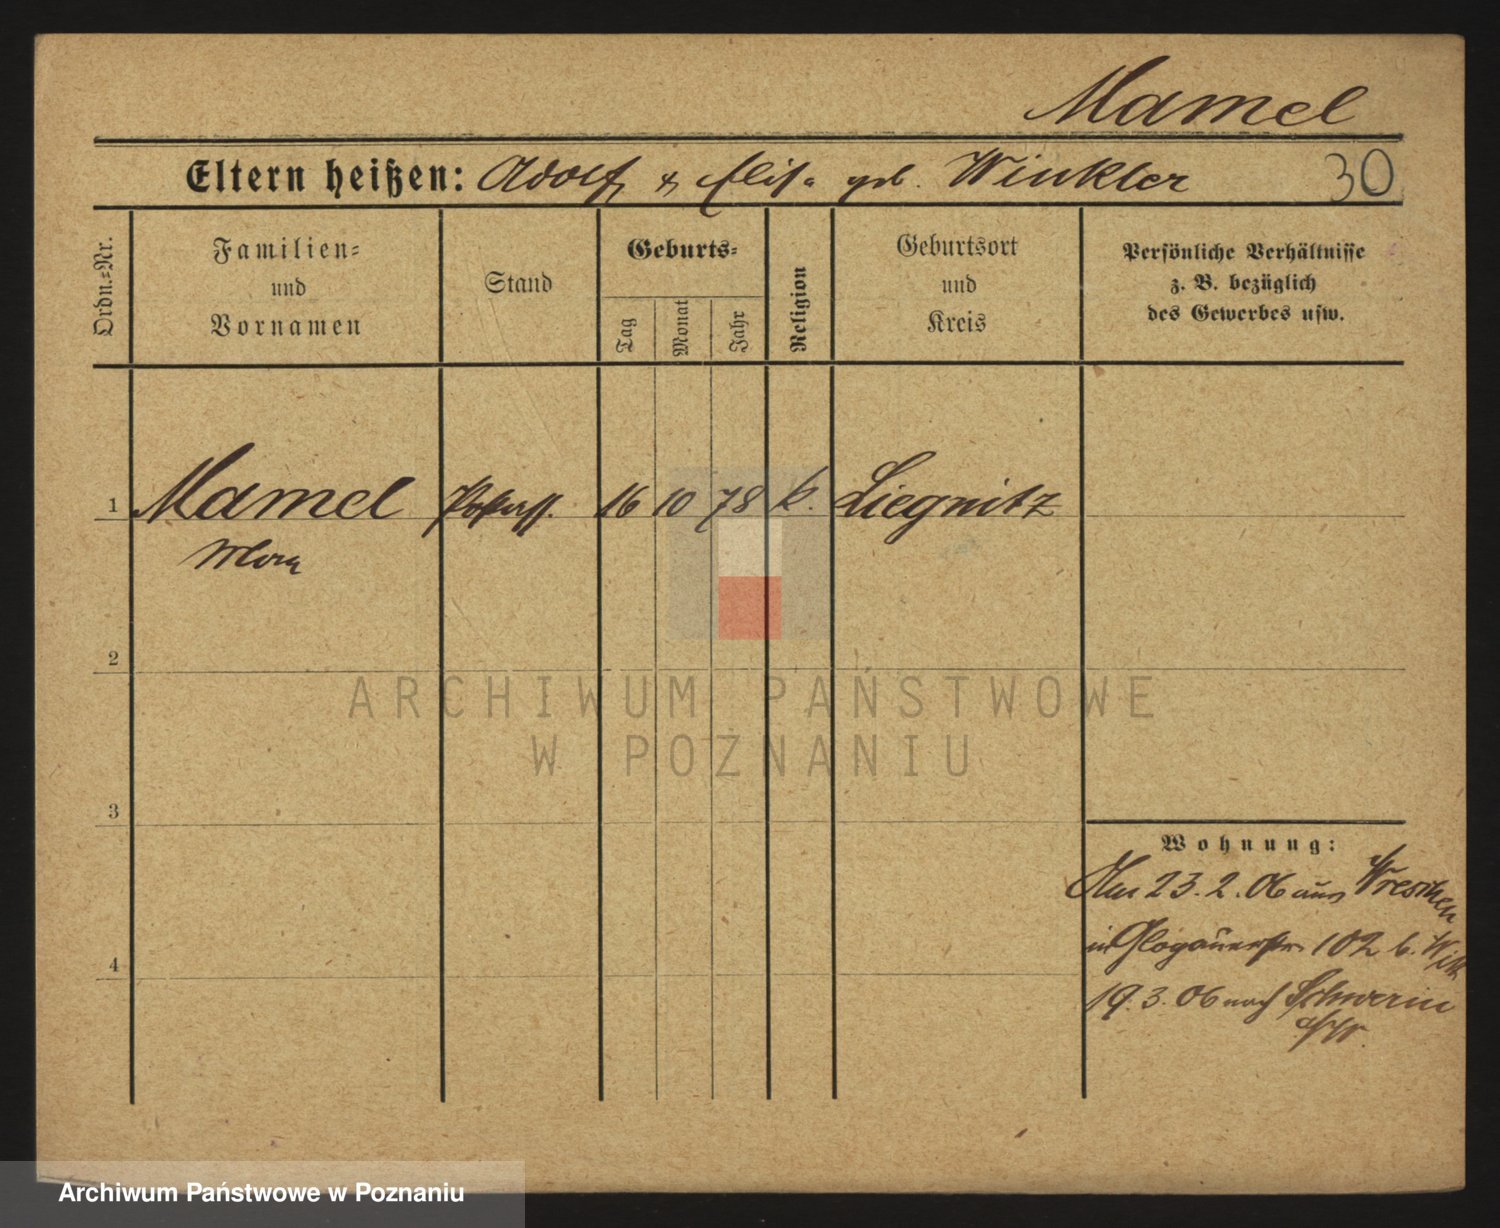 Mamel
Eltern heißen: Adolf & Elisa geb. Winkler 30
Ordn.=Nr.
Familien=
und
Vornamen
Stand
Geburts=
Tag
Monat
Jahr
Religion
Geburtsort
und
Kreis
Persönliche Verhältnisse
z. B. bezüglich
des Gewerbes usw.
1 Mamel 16 10 78 k. Liegnitz
2
ARCHIWUM PAŃSTWOWE
W POZNANIU
3
Wohnung:
23.2.06 aus Wreschen
in Glogauerstr. 102 b.
4
19.3.06 nach Schwerin
Archiwum Państwowe w Poznaniu